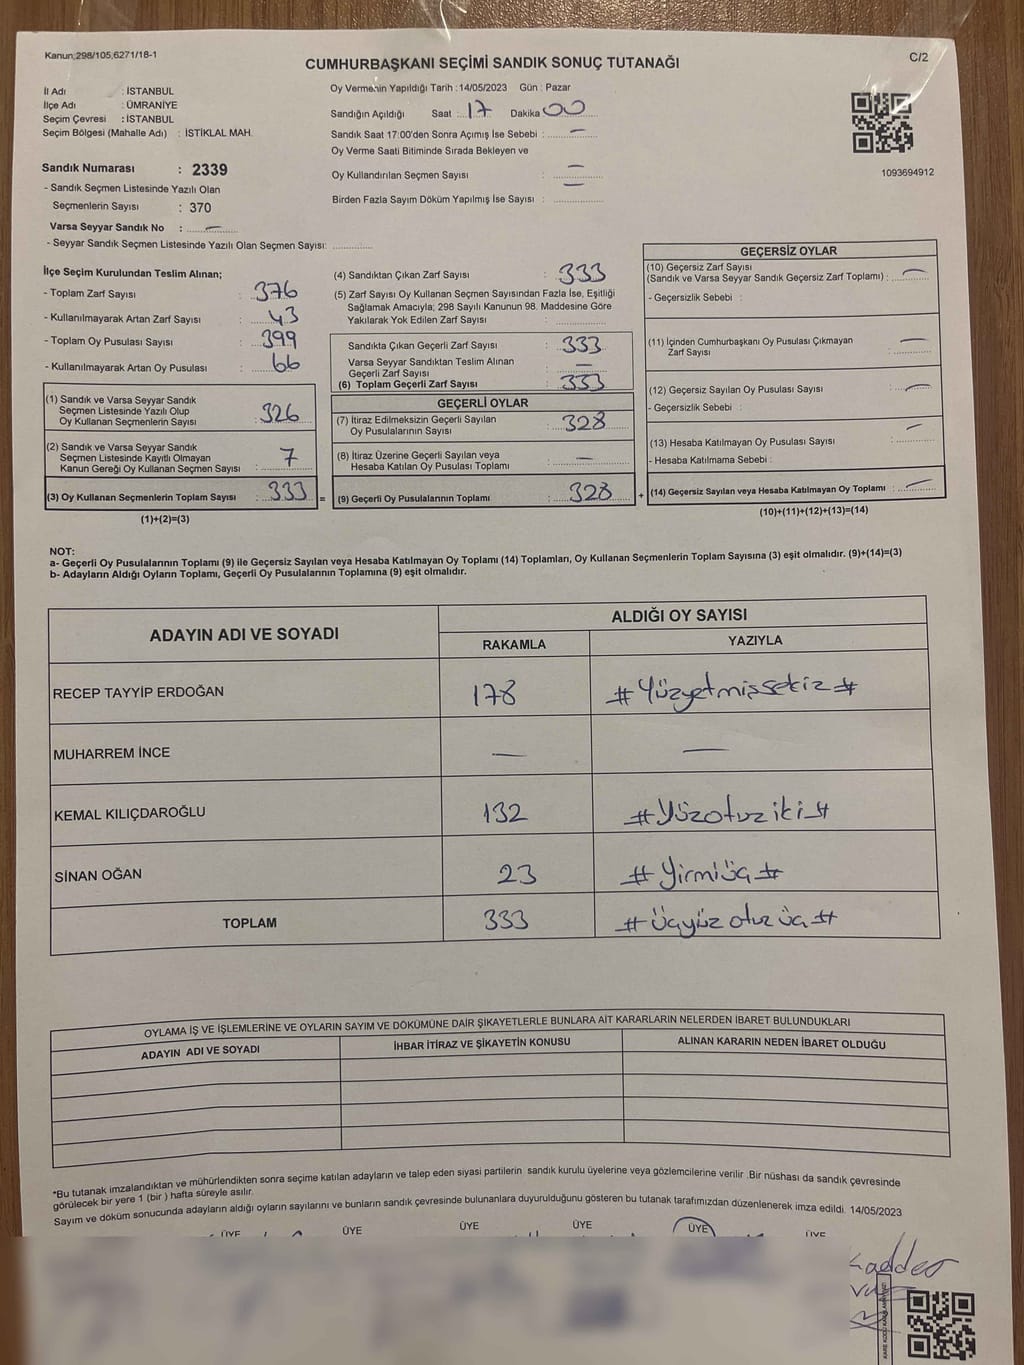 Kanun;298/105,6271/18-1
C/2
CUMHURBAŞKANI SEÇİMİ SANDIK SONUÇ TUTANAĞI
İl Adı : İSTANBUL
İlçe Adı : ÜMRANİYE
Seçim Çevresi : İSTANBUL
Seçim Bölgesi (Mahalle Adı) : İSTİKLAL MAH.
Oy Vermenin Yapıldığı Tarih : 14/05/2023 Gün : Pazar
Sandığın Açıldığı Saat : 17 Dakika 00
Sandık Saat 17:00'den Sonra Açımış İse Sebebi : —
Oy Verme Saati Bitiminde Sırada Bekleyen ve
Oy Kullandırılan Seçmen Sayısı : —
Birden Fazla Sayım Döküm Yapılmış İse Sayısı : —
1093694912
Sandık Numarası : 2339
- Sandık Seçmen Listesinde Yazılı Olan
Seçmenlerin Sayısı : 370
Varsa Seyyar Sandık No : —
- Seyyar Sandık Seçmen Listesinde Yazılı Olan Seçmen Sayısı:
İlçe Seçim Kurulundan Teslim Alınan;
- Toplam Zarf Sayısı : 376
- Kullanılmayarak Artan Zarf Sayısı : 43
- Toplam Oy Pusulası Sayısı : 399
- Kullanılmayarak Artan Oy Pusulası : 66
(1) Sandık ve Varsa Seyyar Sandık
Seçmen Listesinde Yazılı Olup
Oy Kullanan Seçmenlerin Sayısı : 326
(2) Sandık ve Varsa Seyyar Sandık
Seçmen Listesinde Kayıtlı Olmayan
Kanun Gereği Oy Kullanan Seçmen Sayısı : 7
(3) Oy Kullanan Seçmenlerin Toplam Sayısı : 333 =
(1)+(2)=(3)
(4) Sandıktan Çıkan Zarf Sayısı : 333
(5) Zarf Sayısı Oy Kullanan Seçmen Sayısından Fazla İse, Eşitliği
Sağlamak Amacıyla; 298 Sayılı Kanunun 98. Maddesine Göre
Yakılarak Yok Edilen Zarf Sayısı :
Sandıkta Çıkan Geçerli Zarf Sayısı : 333
Varsa Seyyar Sandıktan Teslim Alınan
Geçerli Zarf Sayısı : —
(6) Toplam Geçerli Zarf Sayısı : 333
GEÇERLİ OYLAR
(7) İtiraz Edilmeksizin Geçerli Sayılan
Oy Pusulalarının Sayısı : 328
(8) İtiraz Üzerine Geçerli Sayılan veya
Hesaba Katılan Oy Pusulası Toplamı : —
(9) Geçerli Oy Pusulalarının Toplamı : 328 +
GEÇERSİZ OYLAR
(10) Geçersiz Zarf Sayısı
(Sandık ve Varsa Seyyar Sandık Geçersiz Zarf Toplamı) : —
- Geçersizlik Sebebi :
(11) İçinden Cumhurbaşkanı Oy Pusulası Çıkmayan
Zarf Sayısı : —
(12) Geçersiz Sayılan Oy Pusulası Sayısı : —
- Geçersizlik Sebebi :
(13) Hesaba Katılmayan Oy Pusulası Sayısı : —
- Hesaba Katılmama Sebebi :
(14) Geçersiz Sayılan veya Hesaba Katılmayan Oy Toplamı : —
(10)+(11)+(12)+(13)=(14)
NOT:
a- Geçerli Oy Pusulalarının Toplamı (9) ile Geçersiz Sayılan veya Hesaba Katılmayan Oy Toplamı (14) Toplamları, Oy Kullanan Seçmenlerin Toplam Sayısına (3) eşit olmalıdır. (9)+(14)=(3)
b- Adayların Aldığı Oyların Toplamı, Geçerli Oy Pusulalarının Toplamına (9) eşit olmalıdır.
ADAYIN ADI VE SOYADI
ALDIĞI OY SAYISI
RAKAMLA YAZIYLA
RECEP TAYYİP ERDOĞAN 178 #Yüzyetmişsekiz#
MUHARREM İNCE — —
KEMAL KILIÇDAROĞLU 132 #Yüzotuziki#
SİNAN OĞAN 23 #Yirmiüç#
TOPLAM 333 #Üçyüzotuzüç#
OYLAMA İŞ VE İŞLEMLERİNE VE OYLARIN SAYIM VE DÖKÜMÜNE DAİR ŞİKAYETLERLE BUNLARA AİT KARARLARIN NELERDEN İBARET BULUNDUKLARI
ADAYIN ADI VE SOYADI İHBAR İTİRAZ VE ŞİKAYETİN KONUSU ALINAN KARARIN NEDEN İBARET OLDUĞU
*Bu tutanak imzalandıktan ve mühürlendikten sonra seçime katılan adayların ve talep eden siyasi partilerin sandık kurulu üyelerine veya gözlemcilerine verilir .Bir nüshası da sandık çevresinde
görülecek bir yere 1 (bir ) hafta süreyle asılır.
Sayım ve döküm sonucunda adayların aldığı oyların sayılarını ve bunların sandık çevresinde bulunanlara duyurulduğunu gösteren bu tutanak tarafımızdan düzenlenerek imza edildi. 14/05/2023
ÜYE ÜYE ÜYE ÜYE ÜYE ÜYE